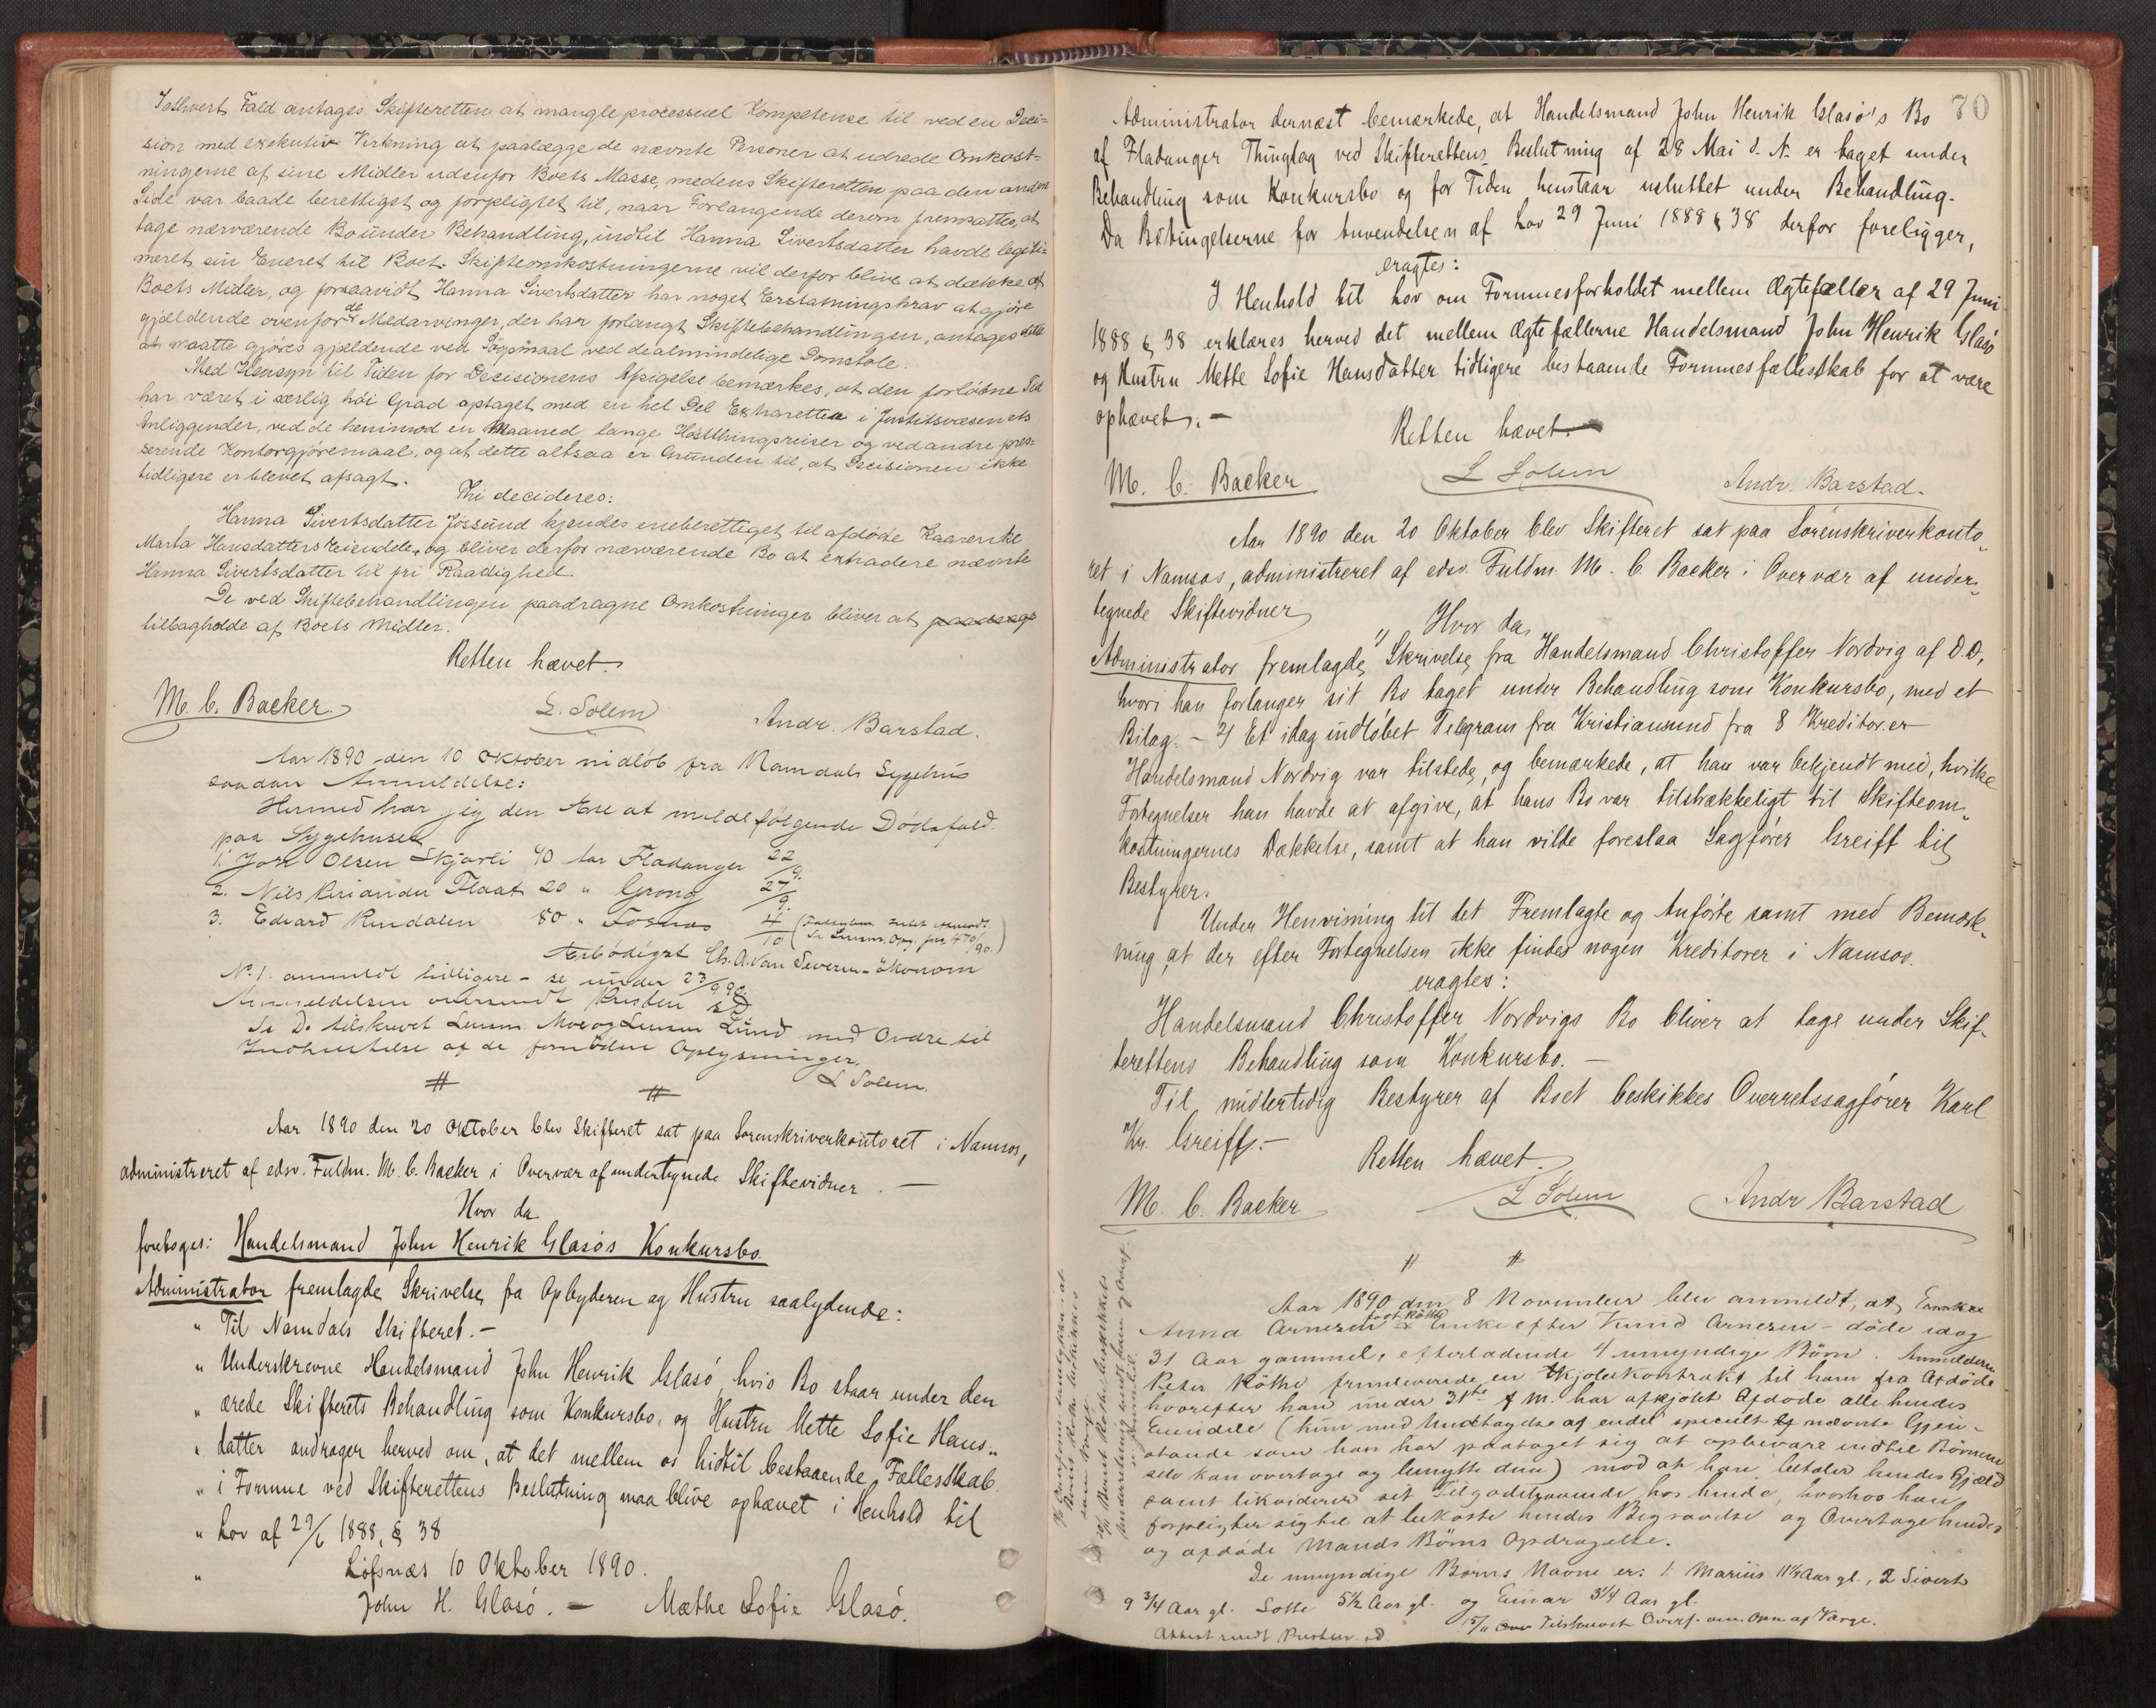 Ialhvert Fald antages Skifteretten at mangle processuel Kompetense til ved en Deci-
sion med exekutiv Virkning at paalægge de nævnte Personer at udrede Omkost-
ningerne af sine Midler udenfor Boets Masse, medens Skifteretten paa den anden
Side var baade berettiget og forpligtet til, naar Forlangende derom fremsattes, at
tage nærværende Bo under Behandling, indtil Hanna Sivertsdatter havde legiti-
meret sin Eneret til Boet. Skifteomkostningerne vil derfor blive at dække af
Boets Midler, og forsaavidt Hanna Sivertsdatter har noget Erstatningskrav at gjøre
gjældende ovenfor de Medarvinger, der har forlangt Skiftebehandlingen, antages dette
at maatte gjøres gjældende ved Søgsmaal ved de almindelige Domstole.
Med Hensyn til Tiden for Decisionens Afsigelse bemærkes, at den forløbne Tid
har været i særlig høi Grad optaget med en hel Del Extraretter i Justitsvæsenets
Anliggender, ved de henimod en Maaned lange Høstthingsreiser og ved andre pres-
serende Kontorgjøremaal, og at dette altsaa er Grunden til, at Decisionen ikke
tidligere er blevet afsagt.
Thi decideres:
Hanna Sivertsdatter Jøssund kjendes eneberettiget til afdøde Kaarenke
Marta Hansdatters Eiendele, og bliver derfor nærværende Bo at extradere nævnte
Hanna Sivertsdatter til fri Raadighed.
De ved Skiftebehandlingen paadragne Omkostninger bliver at
tilbagholde af Boets Midler.
Retten hævet.
M. C. Backer L. Solem Andr. Barstad.
Aar 1890 den 10 Oktober indløb fra Namdals Sygehus
saadan Anmeldelse:
Hermed har jeg den Ære at melde følgende Dødsfald
paa Sygehuset
1. Jon Olsen Skjærli 40 Aar Fladanger 22/9.
2. Nils Flaat 20 " Grong 27/9.
3. Edvard Rendalen 80 " Fosnæs 4/10
Ærbødigst Ch. A. van Severen økonom
No 1. anmeldt tidligere - se under 23/9 90.
Anmeldelsen oversendt Presten sD
Se D. tilskrevet Lensm. Moe og Lensm Lund med Ordre til
Indhentelse af de fornødne Oplysninger.
L Solem.
Aar 1890 den 20 Oktober blev Skifteret sat paa Sorenskriverkontoret i Namsos,
administreret af edsv. Fuldm. M. C. Backer i Overvær af undertegnede Skiftevidner. —
Hvor da
foretoges: Handelsmand John Henrik Glasøs Konkursbo.
Administrator fremlagde Skrivelse fra Opbyderen og Hustru saalydende:
" Til Namdals Skifteret. -
" Underskrevne Handelsmand John Henrik Glasø, hvis Bo staar under den
" ærede Skifterets Behandling som Konkursbo, og Hustru Mette Sofie Hans-
" datter andrager herved om, at det mellem os hidtil bestaaende Fællesskab
" i Formue ved Skifterettens Beslutning maa blive ophævet i Henhold til
" Lov af 29/6 1888, § 38
" Løfsnæs 10 Oktober 1890.
John H. Glasø. — Mæthe Sofie Glasø.
70
Administrator dernæst bemærkede, at Handelsmand John Henrik Glasø's Bo
af Fladanger Thinglag ved Skifterettens Beslutning af 28 Mai d. A. er taget under
Behandling som Konkursbo og for Tiden henstaar usluttet under Behandling.
Da Betingelserne for Anvendelsen af Lov 29 Juni 1888 § 38 derfor foreligger,
eragtes:
I Henhold til Lov om Formuesforholdet mellem Ægtefæller af 29 Juni
1888 § 38 erklæres herved det mellem Ægtefællerne Handelsmand John Henrik Glasø
og Hustru Mette Sofie Hansdatter tidligere bestaaende Formuesfællesskab for at være
ophævet. -
Retten hævet.
M. C. Backer L Solem Andr. Barstad.
Aar 1890 den 20 Oktober blev Skifteret sat paa Sorenskriverkonto-
ret i Namsos, administreret af edsv. Fuldm. M. C. Backer i Overvær af under-
tegnede Skiftevidner
Hvor da,
Administrator fremlagde 1) Skrivelse fra Handelsmand Christoffer Nordvig af D.D.,
hvori han forlanger sit Bo taget under Behandling som Konkursbo, med et
Bilag. - 2) Et idag indløbet Telegram fra Kristiansund fra 8 Kreditorer
Handelsmand Nordvig var tilstede, og bemærkede, at han var bekjendt med, hvilke
Fortegnelser han havde at afgive, at hans Bo var tilstrækkeligt til Skifteom-
kostningernes Dækkelse, samt at han vilde foreslaa Sagfører Greiff til
Bestyrer.
Under Henvisning til det Fremlagte og Anførte samt med Bemærk-
ning, at der efter Fortegnelsen ikke findes nogen Kreditorer i Namsos.
eragtes:
Handelsmand Christoffer Nordvigs Bo bliver at tage under Skif-
terettens Behandling som Konkursbo. —
Til midlertidig Bestyrer af Boet beskikkes Overretssagfører Karl
Kr. Greiff. -
Retten hævet.
M. C. Backer L Solem Andr Barstad
Aar 1890 den 8 November blev anmeldt, at Enke
Anna Arnesen født Røthe Enke efter Knud Arnesen - døde idag
31 Aar gammel, efterladende 4 umyndige Børn. Anmelderen
Peter Røthe fremleverede en Skjødekontrakt til ham fra Afdøde
hvorefter han under 31te f M. har afkjøbt Afdøde alle hendes
Eiendele (kun med Undtagelse af endel specielt nævnte Gjen-
stande som han har paataget sig at opbevare indtil Børnene
selv kan overtage og benytte dem) mod at han betaler hendes Gjæld
samt likviderer sit Tilgodehavende hos hende, hvorhos han
forpligter sig til at bekoste hendes Begravelse og Overtage hendes
og afdøde Mands Børns Opdragelse.
De umyndige Børns Navne er: 1. Marius 11¼ Aar gl., 2 Sivert
9 3/4 Aar gl. Lotte 5½ Aar gl. og Einar 3¼ Aar gl.
Attest sendt Presten sD 15/11 Tilskrevet Overf. om Opn. af Værge.